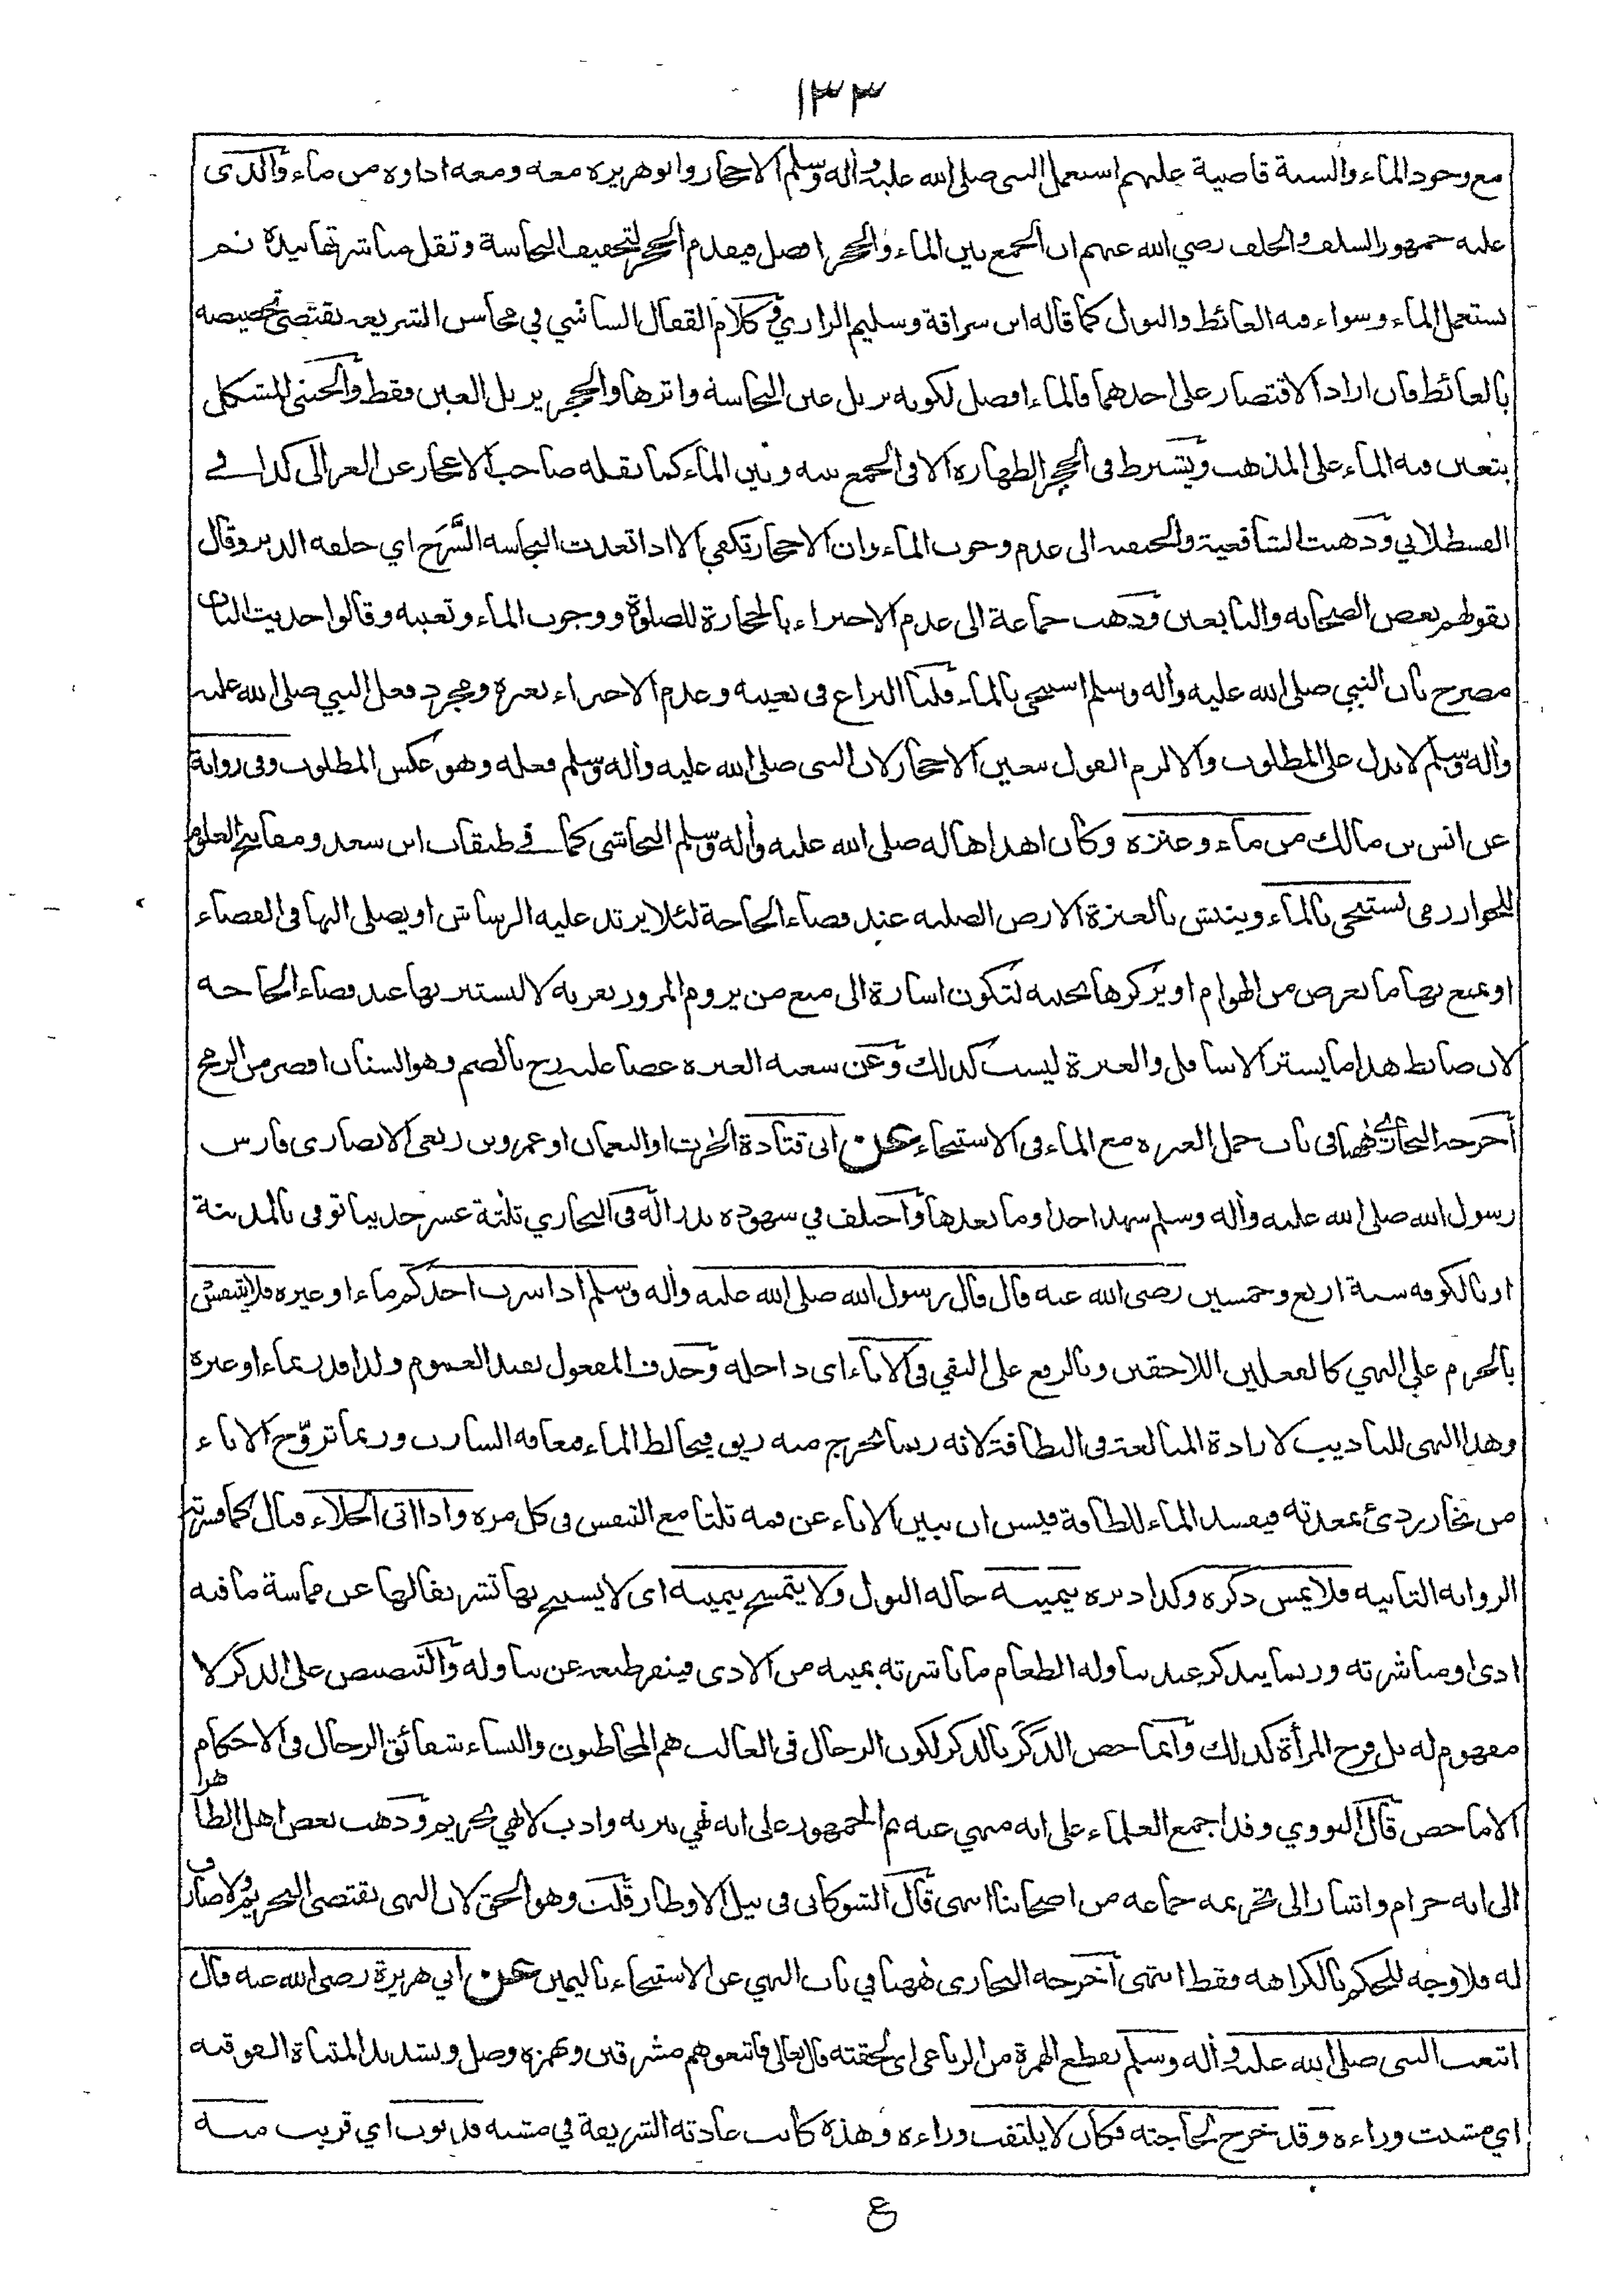 ١٣٣
مع وجود الماء والسنة قاضية عليهم استعمل النبي صلى الله عليه وأله وسلم الاحجار وابو هريرة معه ومعه اداوة من ماء والذى
عليه جمهور السلف والخلف رضي الله عنهم ان الجمع بين الماء والحجر افضل فيقدم الحجر لتخفيف النجاسة وتقل مباشرتها بيده ثم
يستعمل الماء وسواء فيه الغائط والبول كما قاله ابن سراقة وسليم الرازي وكلام القفال الشاشي في محاسن الشريعة يقتضي تخصيصه
بالغائط فان اراد الاقتصار على احدهما فالماء افضل لكونه يزيل عين النجاسة واثرها والحجر يزيل العين فقط والخنثى المشكل
يتعين فيه الماء على المذهب ويشترط فى الحجر الطهارة الا فى الجمع بينه وبين الماء كما نقله صاحب الاعجاز عن الغزالى كذا فے
القسطلاني وذهبت الشافعية والحنفية الى عدم وجوب الماء وان الاحجار تكفي الا اذا تعدت النجاسة الشَّرَج اي حلقة الدبر وقال
بقولهم بعض الصحابة والتابعين وذهب جماعة الى عدم الاجزاء بالحجارة للصلوة ووجوب الماء وتعينه وقالوا حديث الباب
مصرح بان النبي صلى الله عليه وأله وسلم استنجى بالماء قلنا النزاع فى تعينه وعدم الاجزاء بغيره ومجرد فعل النبي صلى الله عليه
وأله وسلم لا يدل على المطلوب والا لزم القول بتعين الاحجار لان النبى صلى الله عليه وأله وسلم فعله وهو عكس المطلوب وفى رواية
عن انس بن مالك من ماء وعنزة وكان اهداها له صلى الله عليه وأله وسلم النجاشى كما فے طبقات ابن سعد ومفاتيح العلوم
للخوارزمى يستنجى بالماء وينبش بالعنزة الارض الصلبة عند قضاء الحاجة لئلا يرتد عليه الرشاش او يصلى اليها فى الفضاء
او يمنع بها ما يعرض من الهوام او يركزها بجنبه لتكون اشارة الى منع من يروم المرور بقربه لا ليستتر بها عند قضاء الحاجة
لان ضابط هذا ما يستر الاسافل والعنزة ليست كذلك وعن شعبة العنزة عصا عليه زج بالضم وهو السنان اقصر من الرمح
أخرجه البخاري ههنا فى باب حمل العنزة مع الماء فى الاستنجاء عن ابى قتادة الحرث او النعمان او عمرو بن ربعى الانصارى فارس
رسول الله صلى الله عليه وأله وسلم شهد احدا وما بعدها واختلف في شهوده بدرا له فى البخاري ثلثة عشر حديثا توفى بالمدينة
او بالكوفة سنة اربع وخمسين رضى الله عنه قال قال رسول الله صلى الله عليه وأله وسلم اذا شرب احدكم ماء او غيره فلا يتنفس
بالجزم على النهي كالفعلين اللاحقين وبالرفع على النفي فى الاناء اى داخله وحذف المفعول يفيد العموم ولذا قدر بماء او غيره
وهذا النهى للتاديب لارادة المبالغة فى النظافة لانه ربما يخرج منه ريق فيخالط الماء فيعافه الشارب وربما تروّح الاناء
من بخار ردئ بمعدته فيفسد الماء للطافته فيسن ان يبين الاناء عن فمه ثلثا مع التنفس فى كل مرة واذا اتى الخلاء فبال كما فسرته
الرواية الثانية فلا يمس ذكره وكذا دبره بيمينه حالة البول ولا يتمسح بيمينه اى لا يستنج بها تشريفا لها عن مماسة ما فيه
اذى او مباشرته وربما يتذكر عند تناوله الطعام ما باشرته يمينه من الاذى فينفر طبعه عن تناوله والتنصيص على الذكر لا
مفهوم له بل فرج المرأة كذلك وانما خص الذَّكَر بالذكر لكون الرجال فى الغالب هم المخاطبون والنساء شقائق الرجال فى الاحكام
الا ما خص قال النووي وقد اجمع العلماء على انه منهي عنه ثم الجمهور على انه نهي تنزيه وادب لا نهي تحريم وذهب بعض اهل الظاهر
الى انه حرام واشار الى تحريمه جماعة من اصحابنا انتهى قال الشوكانى فى نيل الاوطار قلت وهو الحق لان النهى يقتضى التحريم ولا صارف
له فلا وجه للحكم بالكراهة فقط انتهى أخرجه البخارى ههنا في باب النهي عن الاستنجاء باليمين عن ابي هريرة رضى الله عنه قال
اتبعت النبى صلى الله عليه وأله وسلم بقطع الهمزة من الرباعى اى لحقته قال تعالى فاتبعوهم مشرقين وبهمزة وصل وبتشديد المثناة الفوقية
اي مشيت وراءه وقد خرج لحاجته فكان لا يلتفت وراءه وهذه كانت عادته الشريفة في مشيه فدنوت اي قربت منه
ع